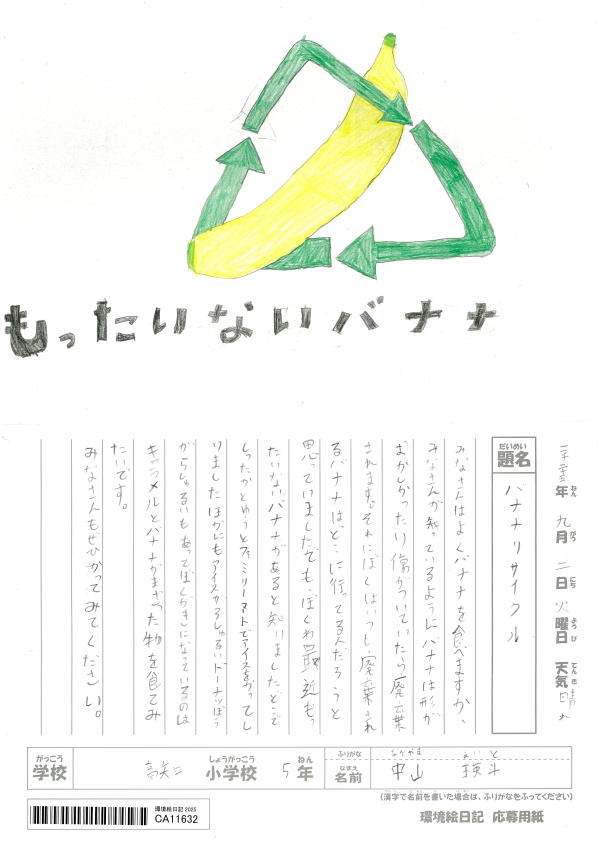 もったいないバナナ
年 九月 二日 火曜日 天気 晴れ
ねん がつ にち ようび てんき
だいめい
題名 バナナリサイクル
みなさんはよくバナナを食べますか、
みなさんが知っているようにバナナは形が
おかしかったり傷がついていたら廃棄
されます。それにぼくはいつも、廃棄され
るバナナは、どこに行ってるんだろうと
思っていました。でも、ぼくわ最近もっ
たいないバナナがあると知りましたどこで
しったかとゆうとファミリーマートでアイスをかってし
りましたほかにもアイスが3しゅるいドーナツぼう
がら1しゅるいもあってぼくがきになっているのは
キャラメルとバナナがまざった物を食てみ
たいです。
みなさんもぜひかってみてください。
がっこう 学校
高知 しょうがっこう 小学校 5 ねん 年
ふりがな なかやま えいと
なまえ 名前 中山 瑛斗
(漢字で名前を書いた場合は、ふりがなをふってください)
環境絵日記 2025
CA11632
環境絵日記 応募用紙